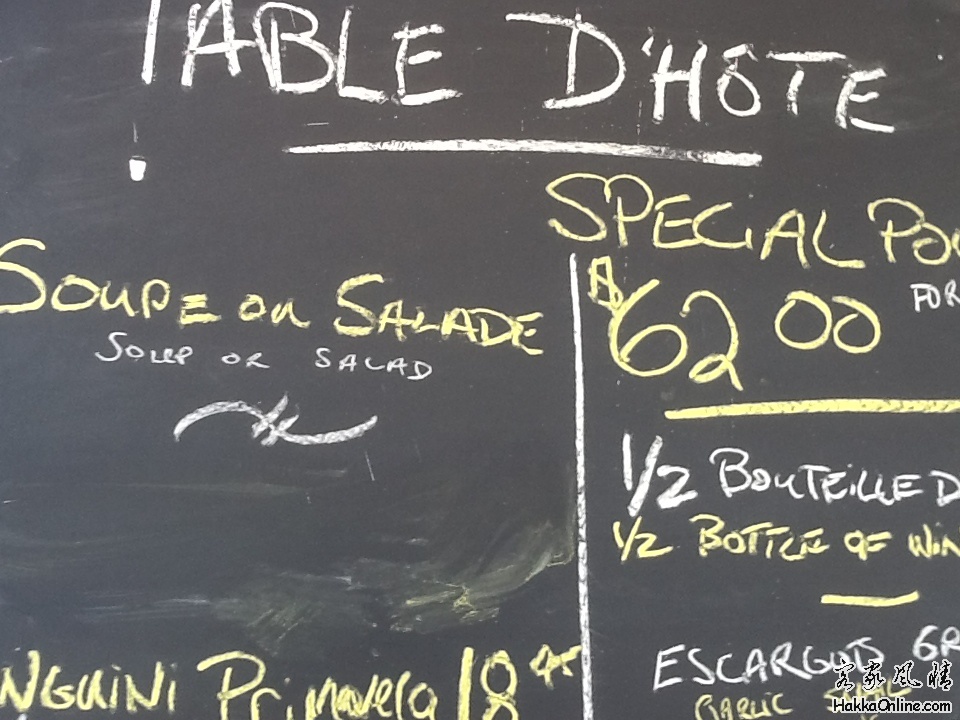 TABLE D'HÔTE
SOUPE OU SALADE
SOUP OR SALAD
NGUINI Primavera 18 45
SPECIAL POU
$62 00 FOR
1/2 BOUTEILLE D
1/2 BOTTLE OF WIN
ESCARGOTS GR
GARLIC
客家風情
HakkaOnline.com